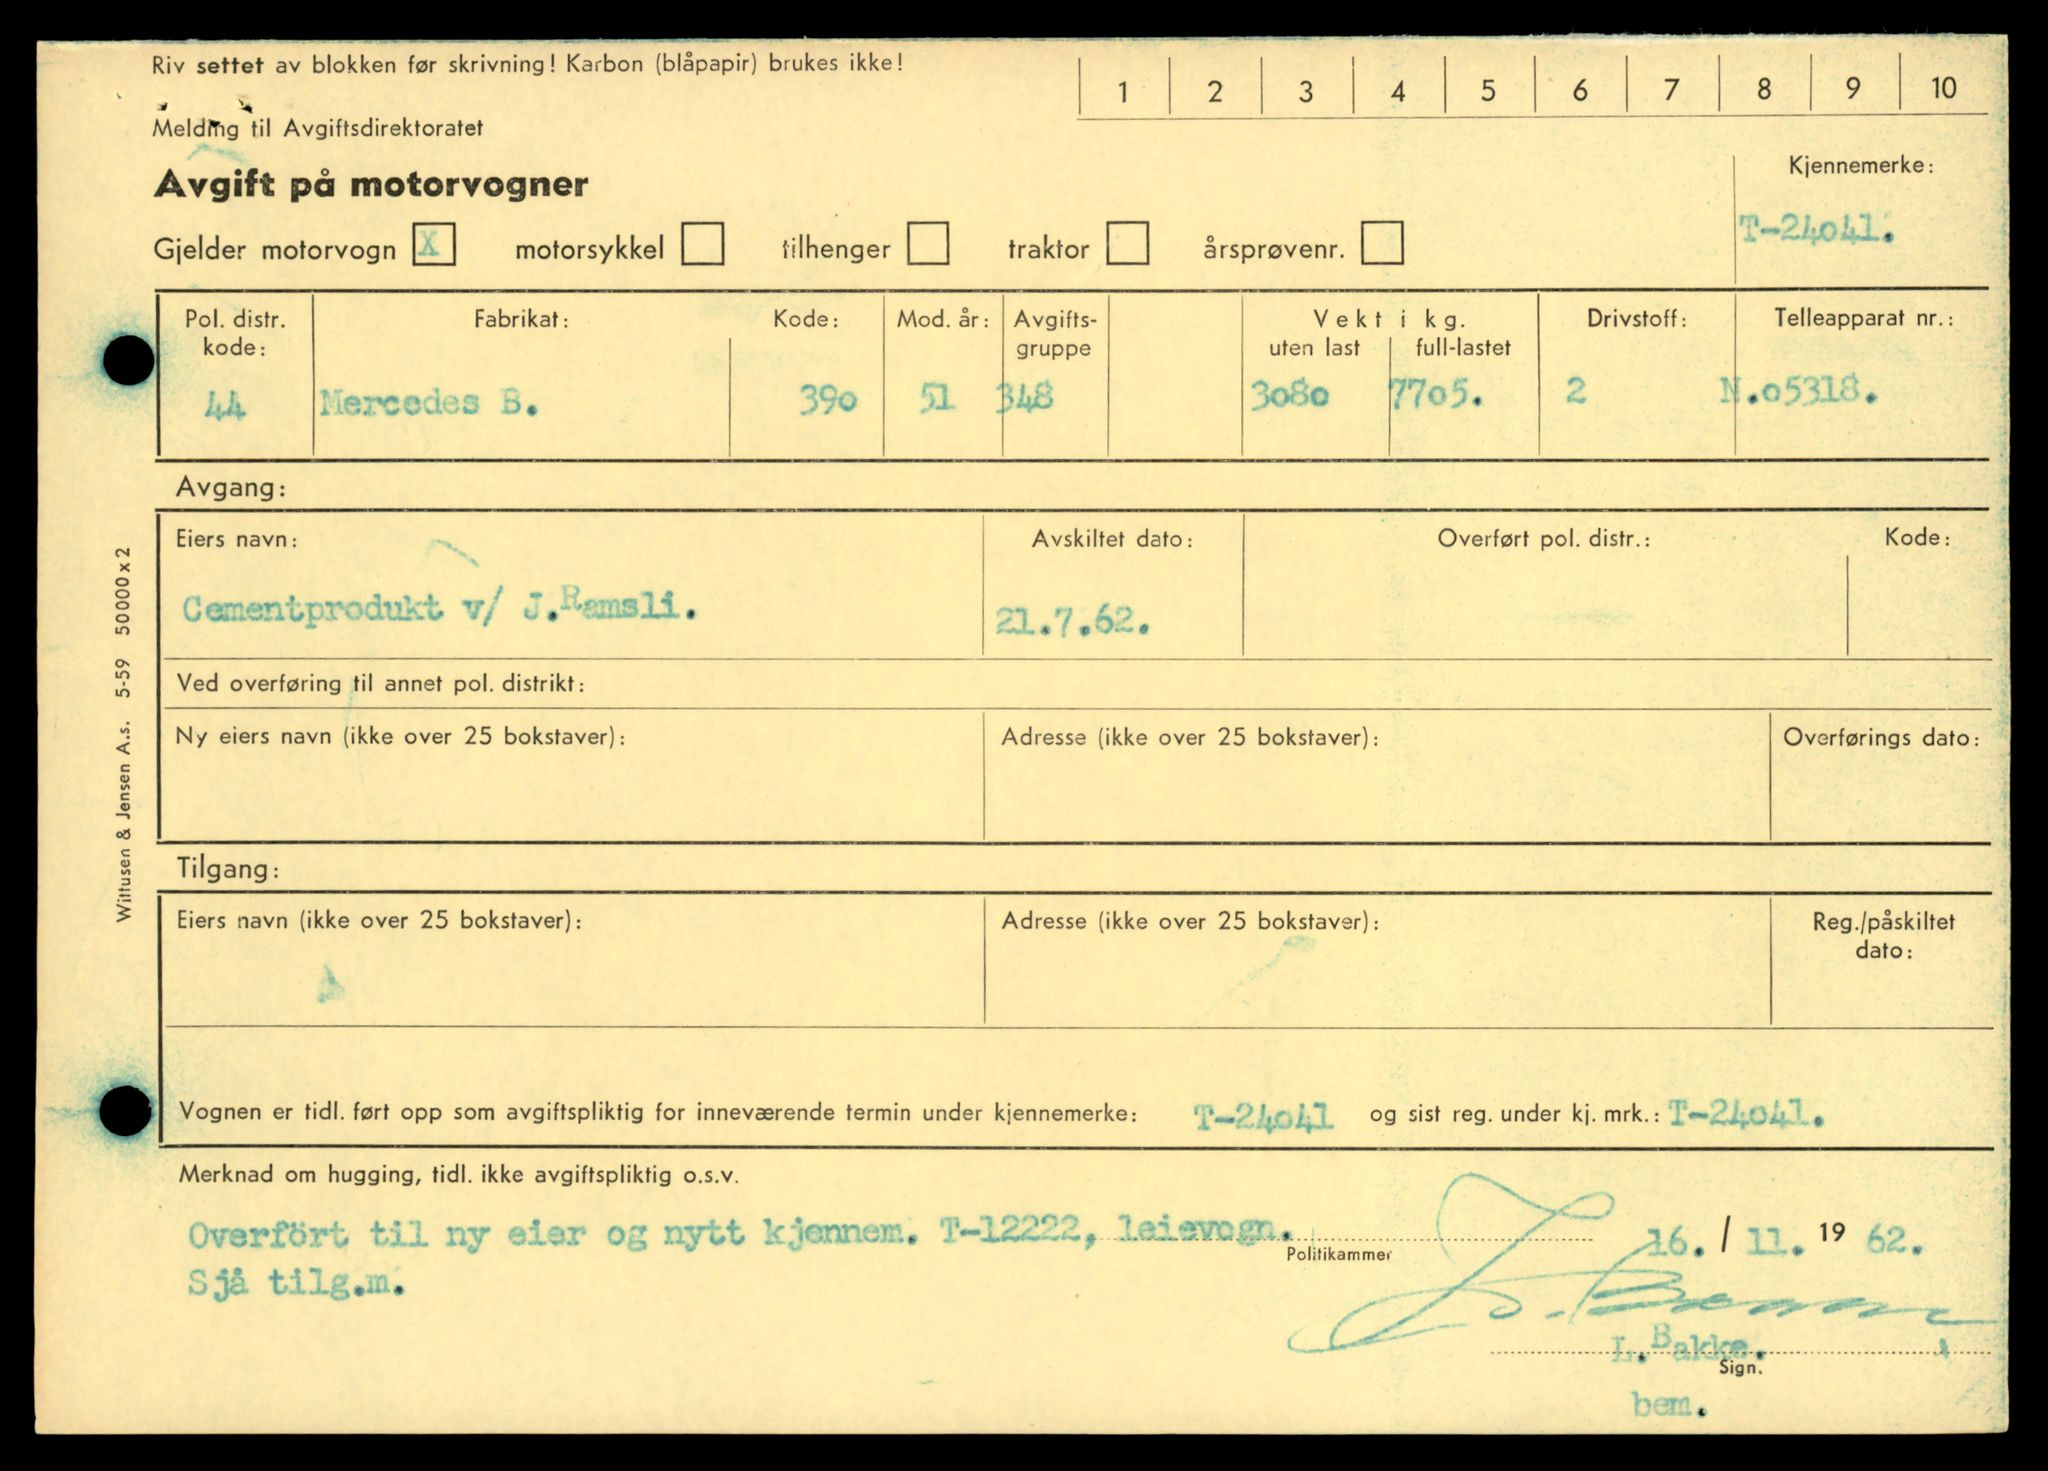 Riv settet av blokken før skrivning! Karbon (blåpapir) brukes ikke!
1 2 3 4 5 6 7 8 9 10
Melding til Avgiftsdirektoratet
Avgift på motorvogner
Kjennemerke:
T-24041.
Gjelder motorvogn X motorsykkel tilhenger traktor årsprøvenr.
Pol. distr. kode:
44
Fabrikat:
Mercedes B.
Kode:
390
Mod. år:
51
Avgifts-
gruppe
348
Vekt i kg.
uten last full-lastet
3080 7705.
Drivstoff:
2
Telleapparat nr.:
N.05318.
Avgang:
Eiers navn:
Cementprodukt v/ J.Ramsli.
Avskiltet dato:
21.7.62.
Overført pol. distr.:
Kode:
Ved overføring til annet pol. distrikt:
Ny eiers navn (ikke over 25 bokstaver):
Adresse (ikke over 25 bokstaver):
Overførings dato:
Tilgang:
Eiers navn (ikke over 25 bokstaver):
Adresse (ikke over 25 bokstaver):
Reg./påskiltet
dato:
Vognen er tidl. ført opp som avgiftspliktig for inneværende termin under kjennemerke: T-24041 og sist reg. under kj. mrk.: T-24041.
Merknad om hugging, tidl. ikke avgiftspliktig o.s.v.
Overfört til ny eier og nytt kjennem. T-12222, leievogn.
Sjå tilg.m.
Politikammer
16. / 11. 19 62.
L.Bakke.
Sign.
bem.
Wittusen & Jensen A.s. 5-59 50000x2